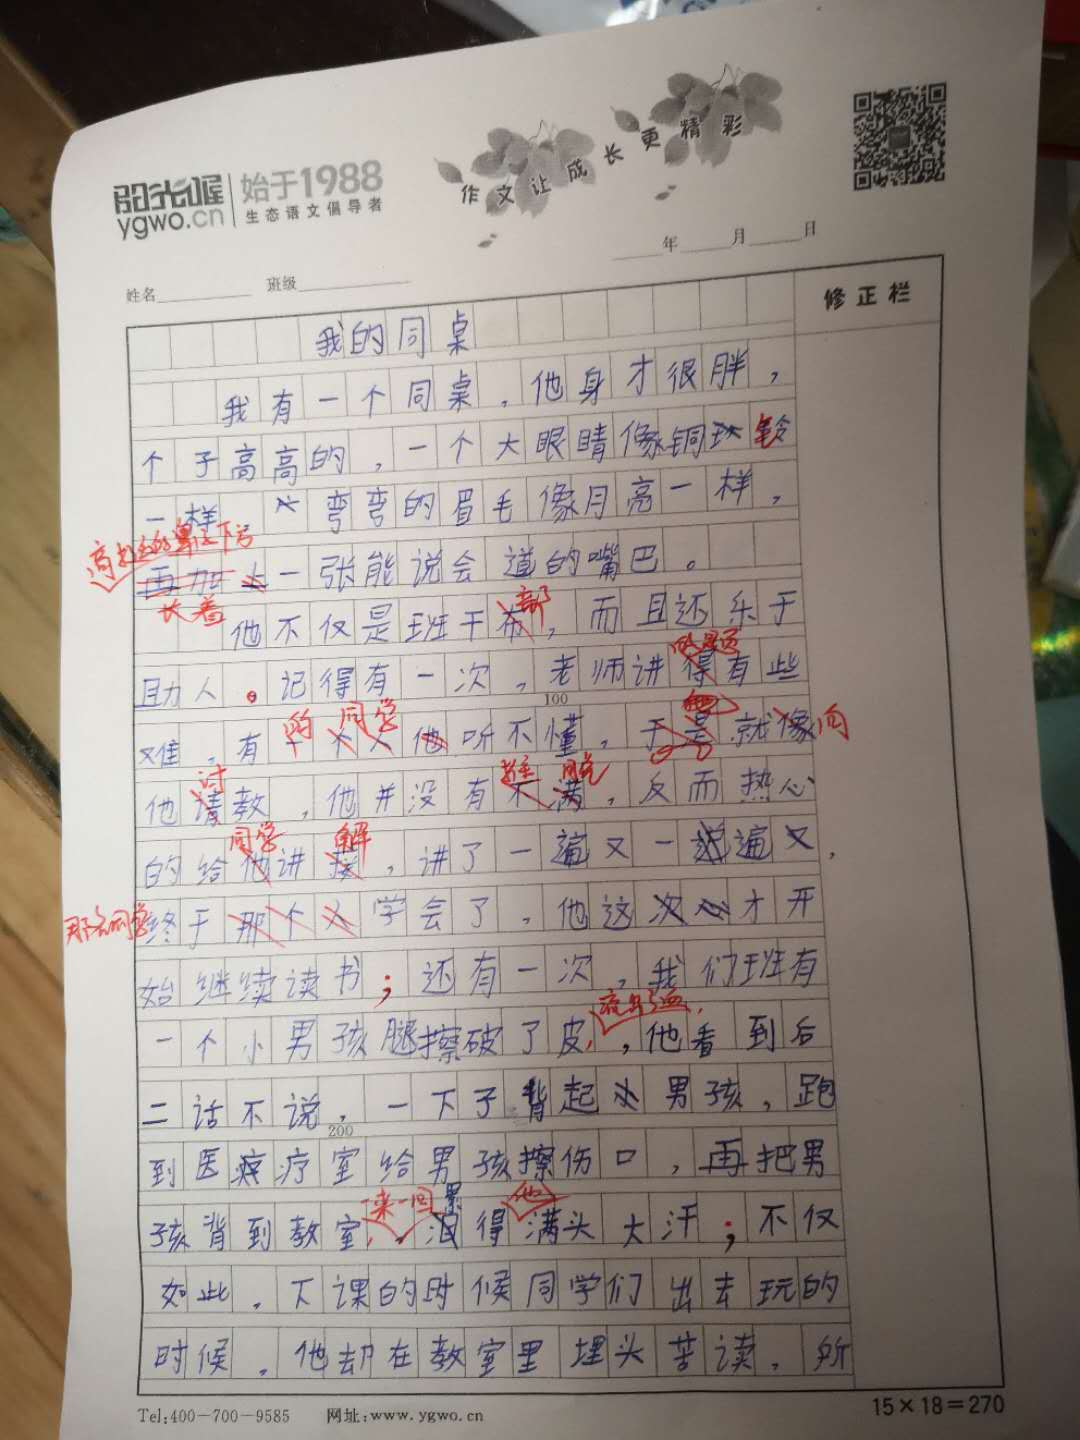 阳光喔
ygwo.cn
始于1988
生态语文倡导者
作文让成长更精彩
年 月 日
姓名 班级
修正栏
我的同桌
我有一个同桌，他身才很胖，
个子高高的，一个大眼睛像铜 铃
一样，弯弯的眉毛像月亮一样，
下写
再加上一张能说会道的嘴巴。
长着 部
他不仅是班干布，而且还乐于
助人。记得有一次，老师讲得有些
100
的同学
难，有个人他听不懂，于是就像向
讨
他请教，他并没有不满，反而热心
同学 解
的给他讲接，讲了一遍又一遍又，
那个同学
终于那个人学会了，他这次心才开
始继续读书；还有一次，我们班有
流出了血，
一个小男孩腿擦破了皮，他看到后
二话不说，一下子背起男孩，跑
200
到医疗室给男孩擦伤口，再把男
来一回 累 他
孩背到教室，得满头大汗；不仅
如此，下课的时候同学们出去玩的
时候，他却在教室里埋头苦读，所
Tel:400-700-9585 网址:www.ygwo.cn
15×18=270